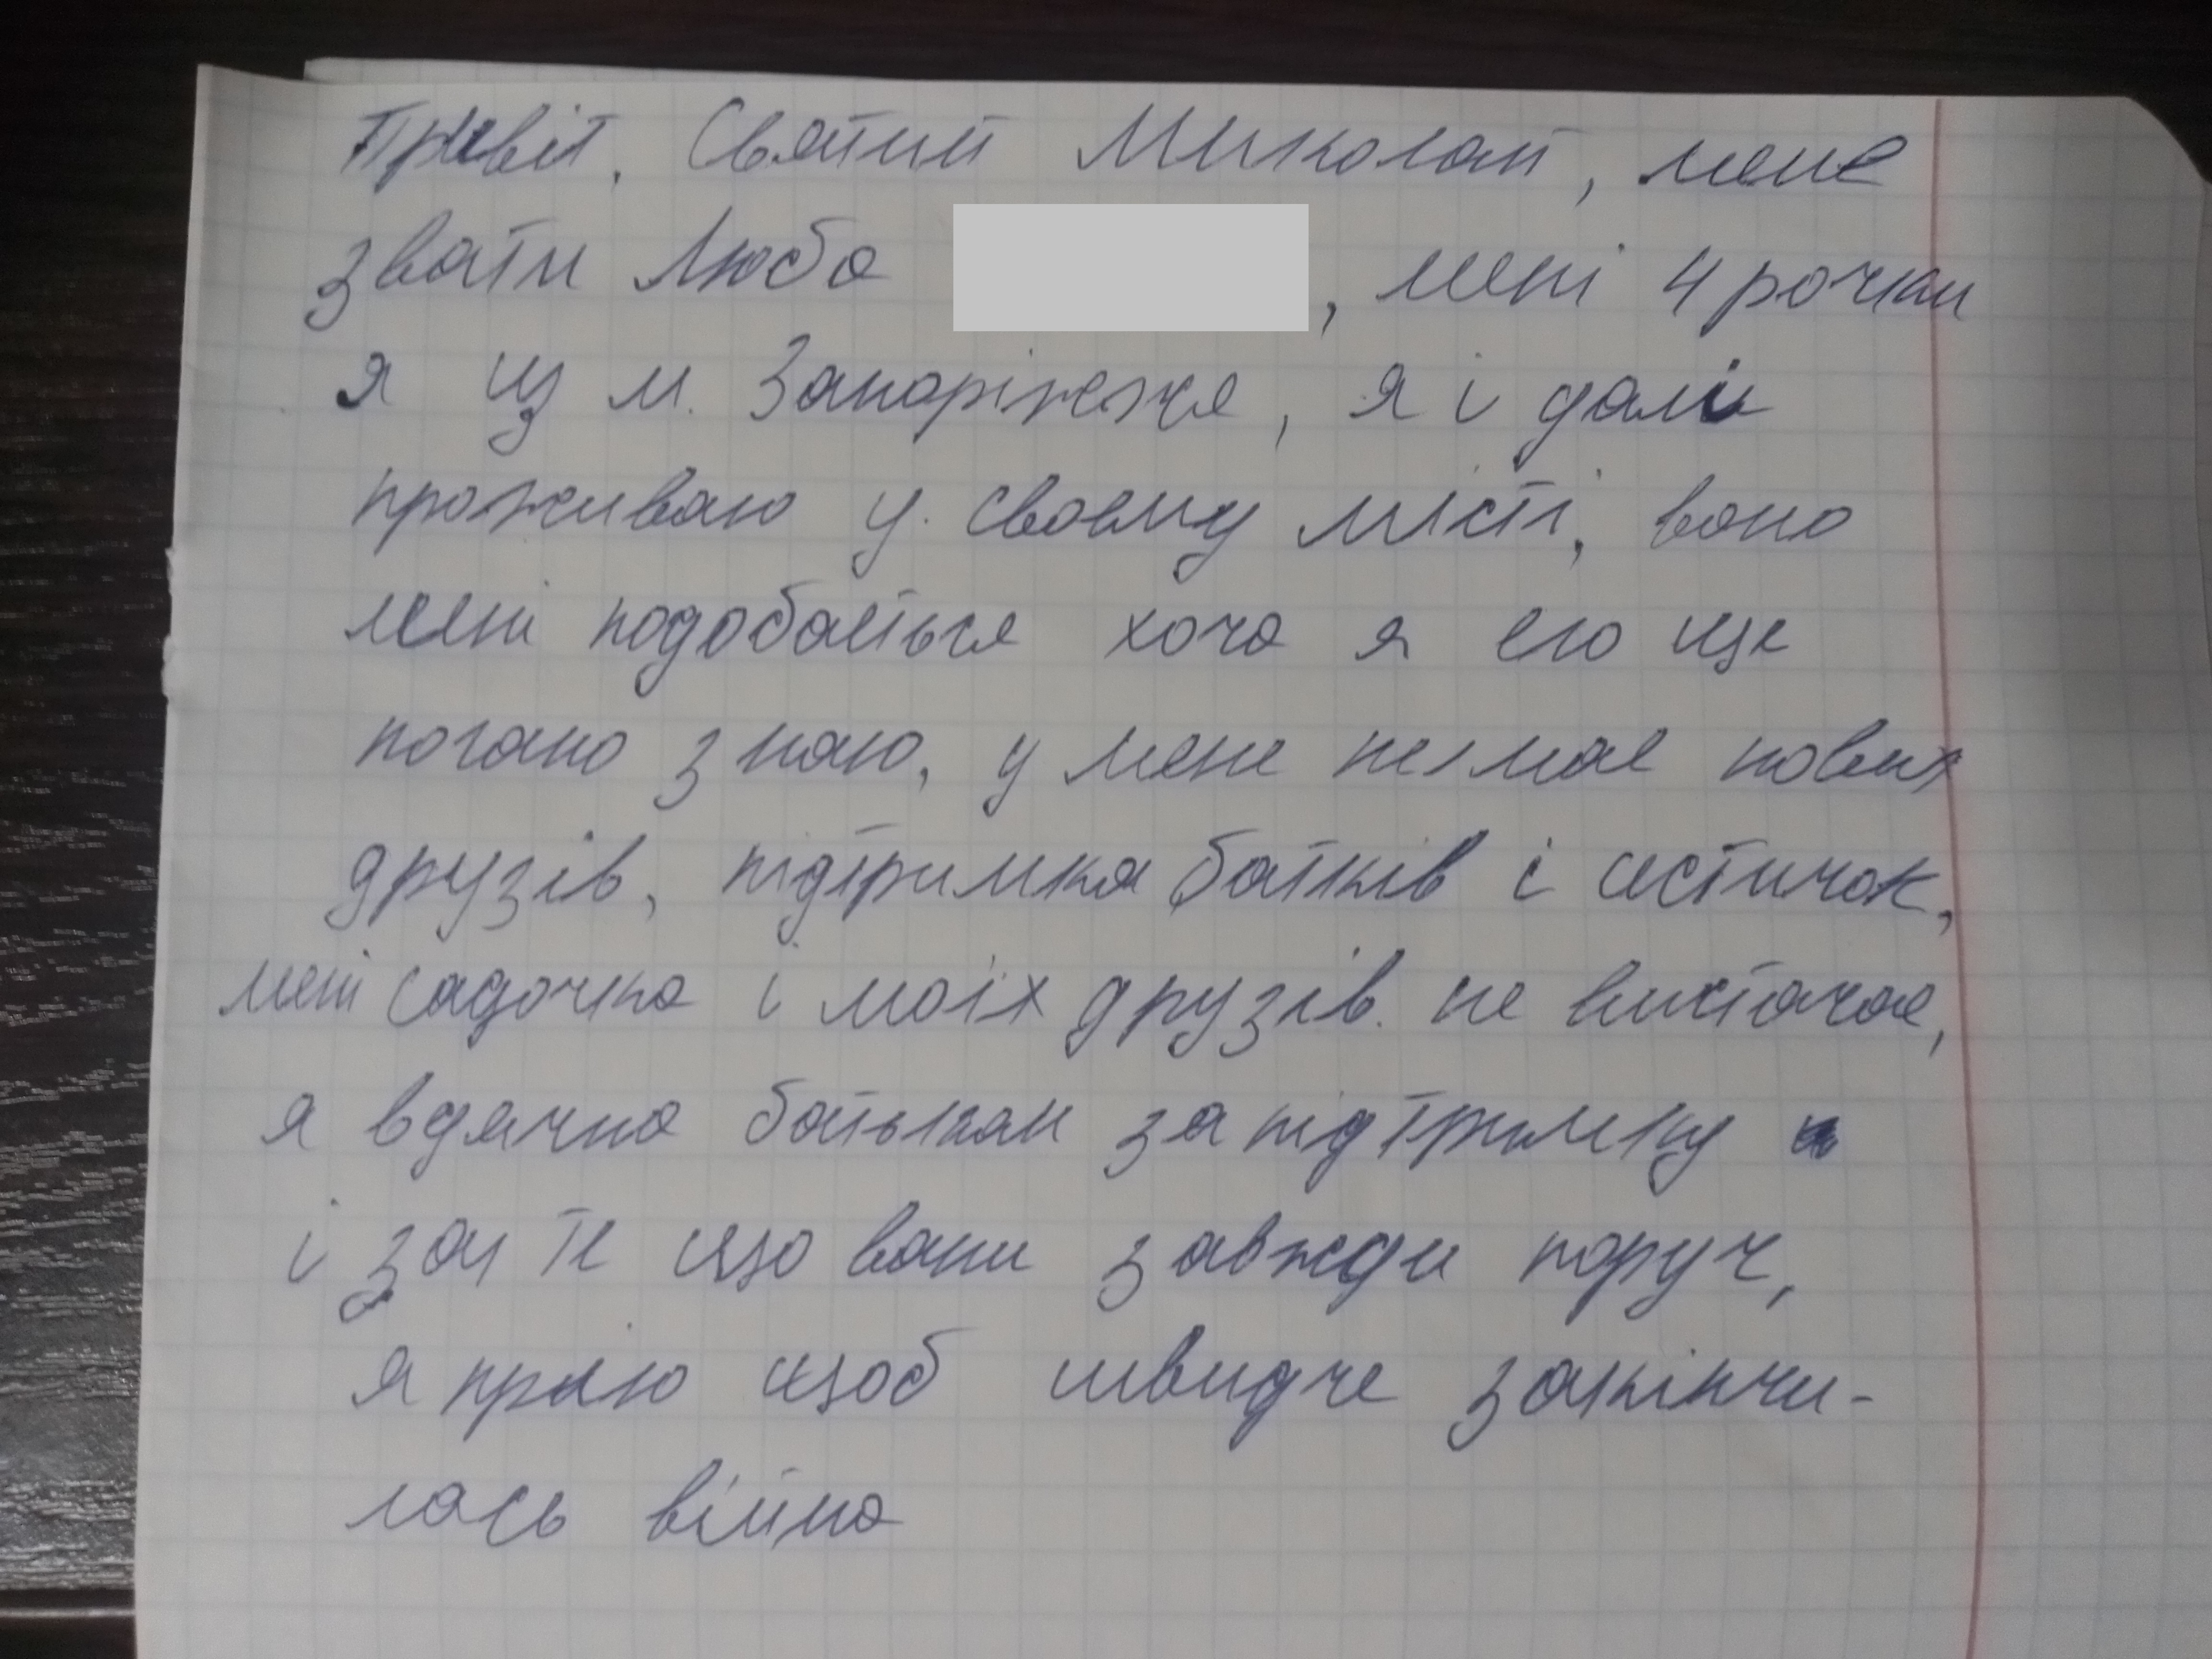 Привіт, Святий Миколай, мене
звати Люба , мені 4 рочки
я із м. Запоріжжя, я і далі
проживаю у своєму місті, воно
мені подобається хоча я ею ще
погано знаю, у мене немає нових
друзів, підтримка батьків і сестичок,
мені садочка і моїх друзів не вистачає,
я вдячна батькам за підтримку
і за те що вони завжди поруч,
я мрію щоб швидче закінчи-
лась війна